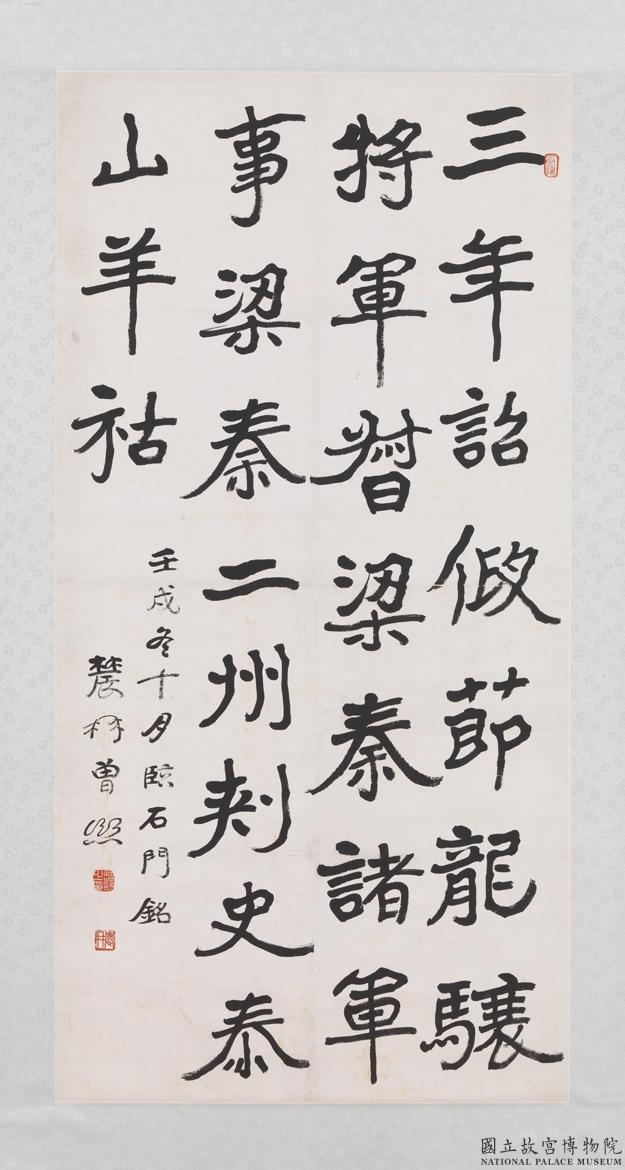 三年詔假節龍驤
將軍督梁秦諸軍
事梁秦二州刺史泰
山羊祉
壬戌冬十月臨石門銘
農髯曾熙
國立故宮博物院
NATIONAL PALACE MUSEUM